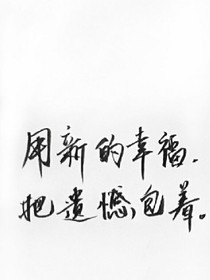 用新的幸福，
把遗憾包着。